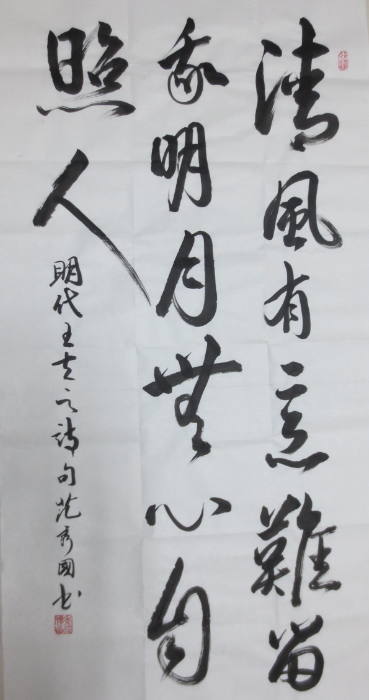 清風有意難留
我明月無心自
照人
明代王夫之詩句范秀國书